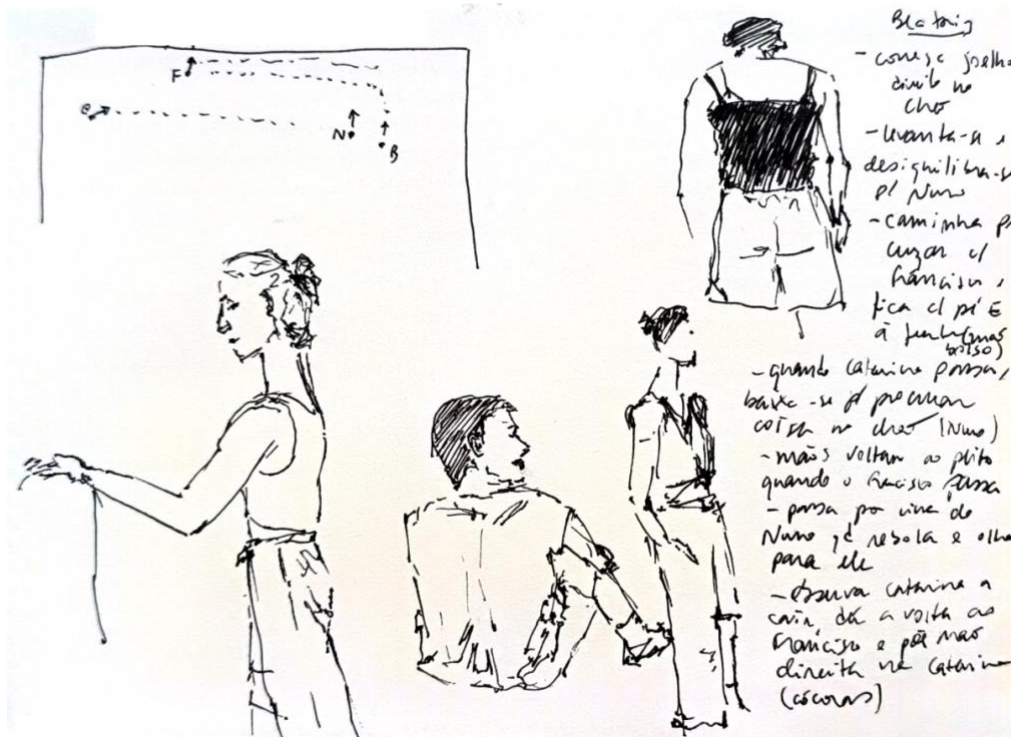 F
N
B
Beatriz
- começa joelho
direito no
chão
- levanta-se e
desequilibra-se
p/ Nuno
- caminha p/
cruzar c/
Francisco e
fica c/ pé E
à frente (mãos
bolso)
- quando Catarina passa,
baixa-se p/ procurar
coisa no chão (Nuno)
- mãos voltam ao peito
quando o Francisco passa
- passa por cima do
Nuno, rebola e olha
para ele
- observa Catarina a
cair, dá a volta ao
Francisco e põe mão
direita na Catarina
(cócoras)